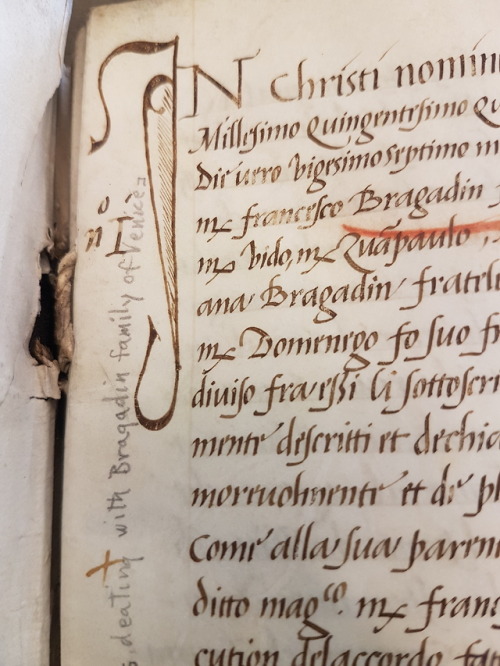 IN Christi nomin
Millesimo Quingentesimo Qu
Die uero vigesimoseptimo m
mx francesco Bragadin
mx vido, mx Zuã paulo,
ana Bragadin fratel
mx Domenego fo suo fr
diuiso fra essi li sottoscri
mente descritti et dechia
moreuolmente et de pl
Come alla sua paren
ditto mag.co mx franc
cution dell accordo fa
no
dealing with Bragadin family of Venice